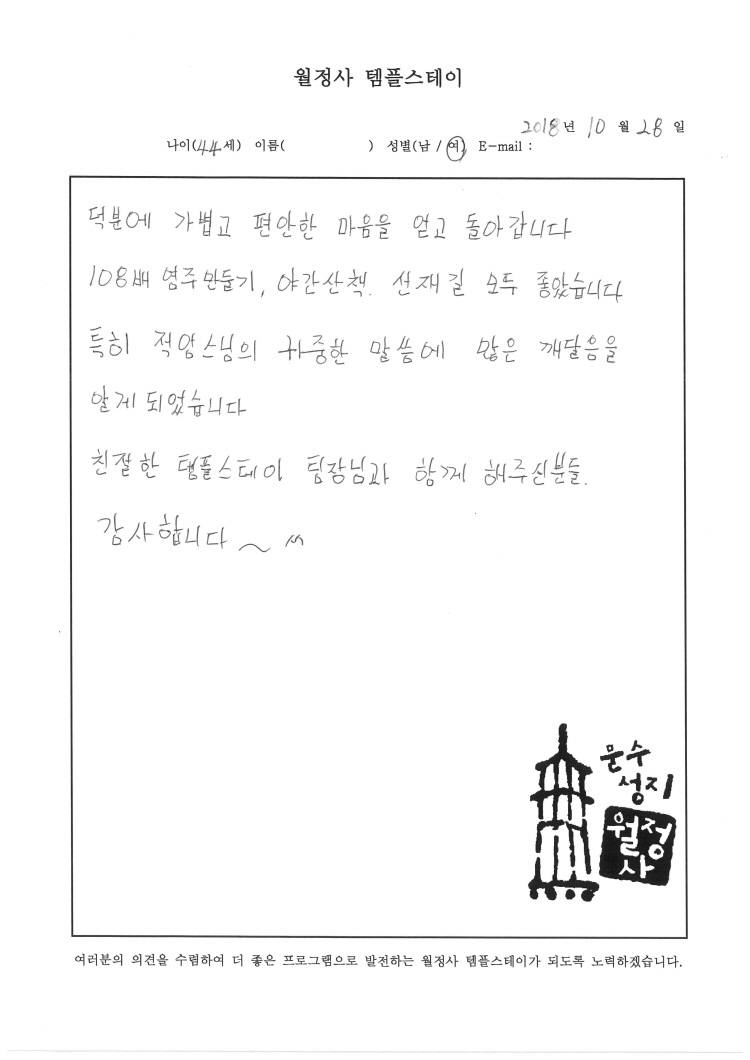 월정사 템플스테이
2018년 10월 28일
나이(44세) 이름( ) 성별(남 / 여) E-mail :
덕분에 가볍고 편안한 마음을 얻고 돌아갑니다
108배 염주만들기, 야간산책. 선재길 모두 좋았습니다
특히 적엄스님의 귀중한 말씀에 많은 깨달음을
알게 되었습니다
친절한 템플스테이 팀장님과 함께 해주신분들.
감사합니다 ~ ^^
문수
성지
월정
사
여러분의 의견을 수렴하여 더 좋은 프로그램으로 발전하는 월정사 템플스테이가 되도록 노력하겠습니다.